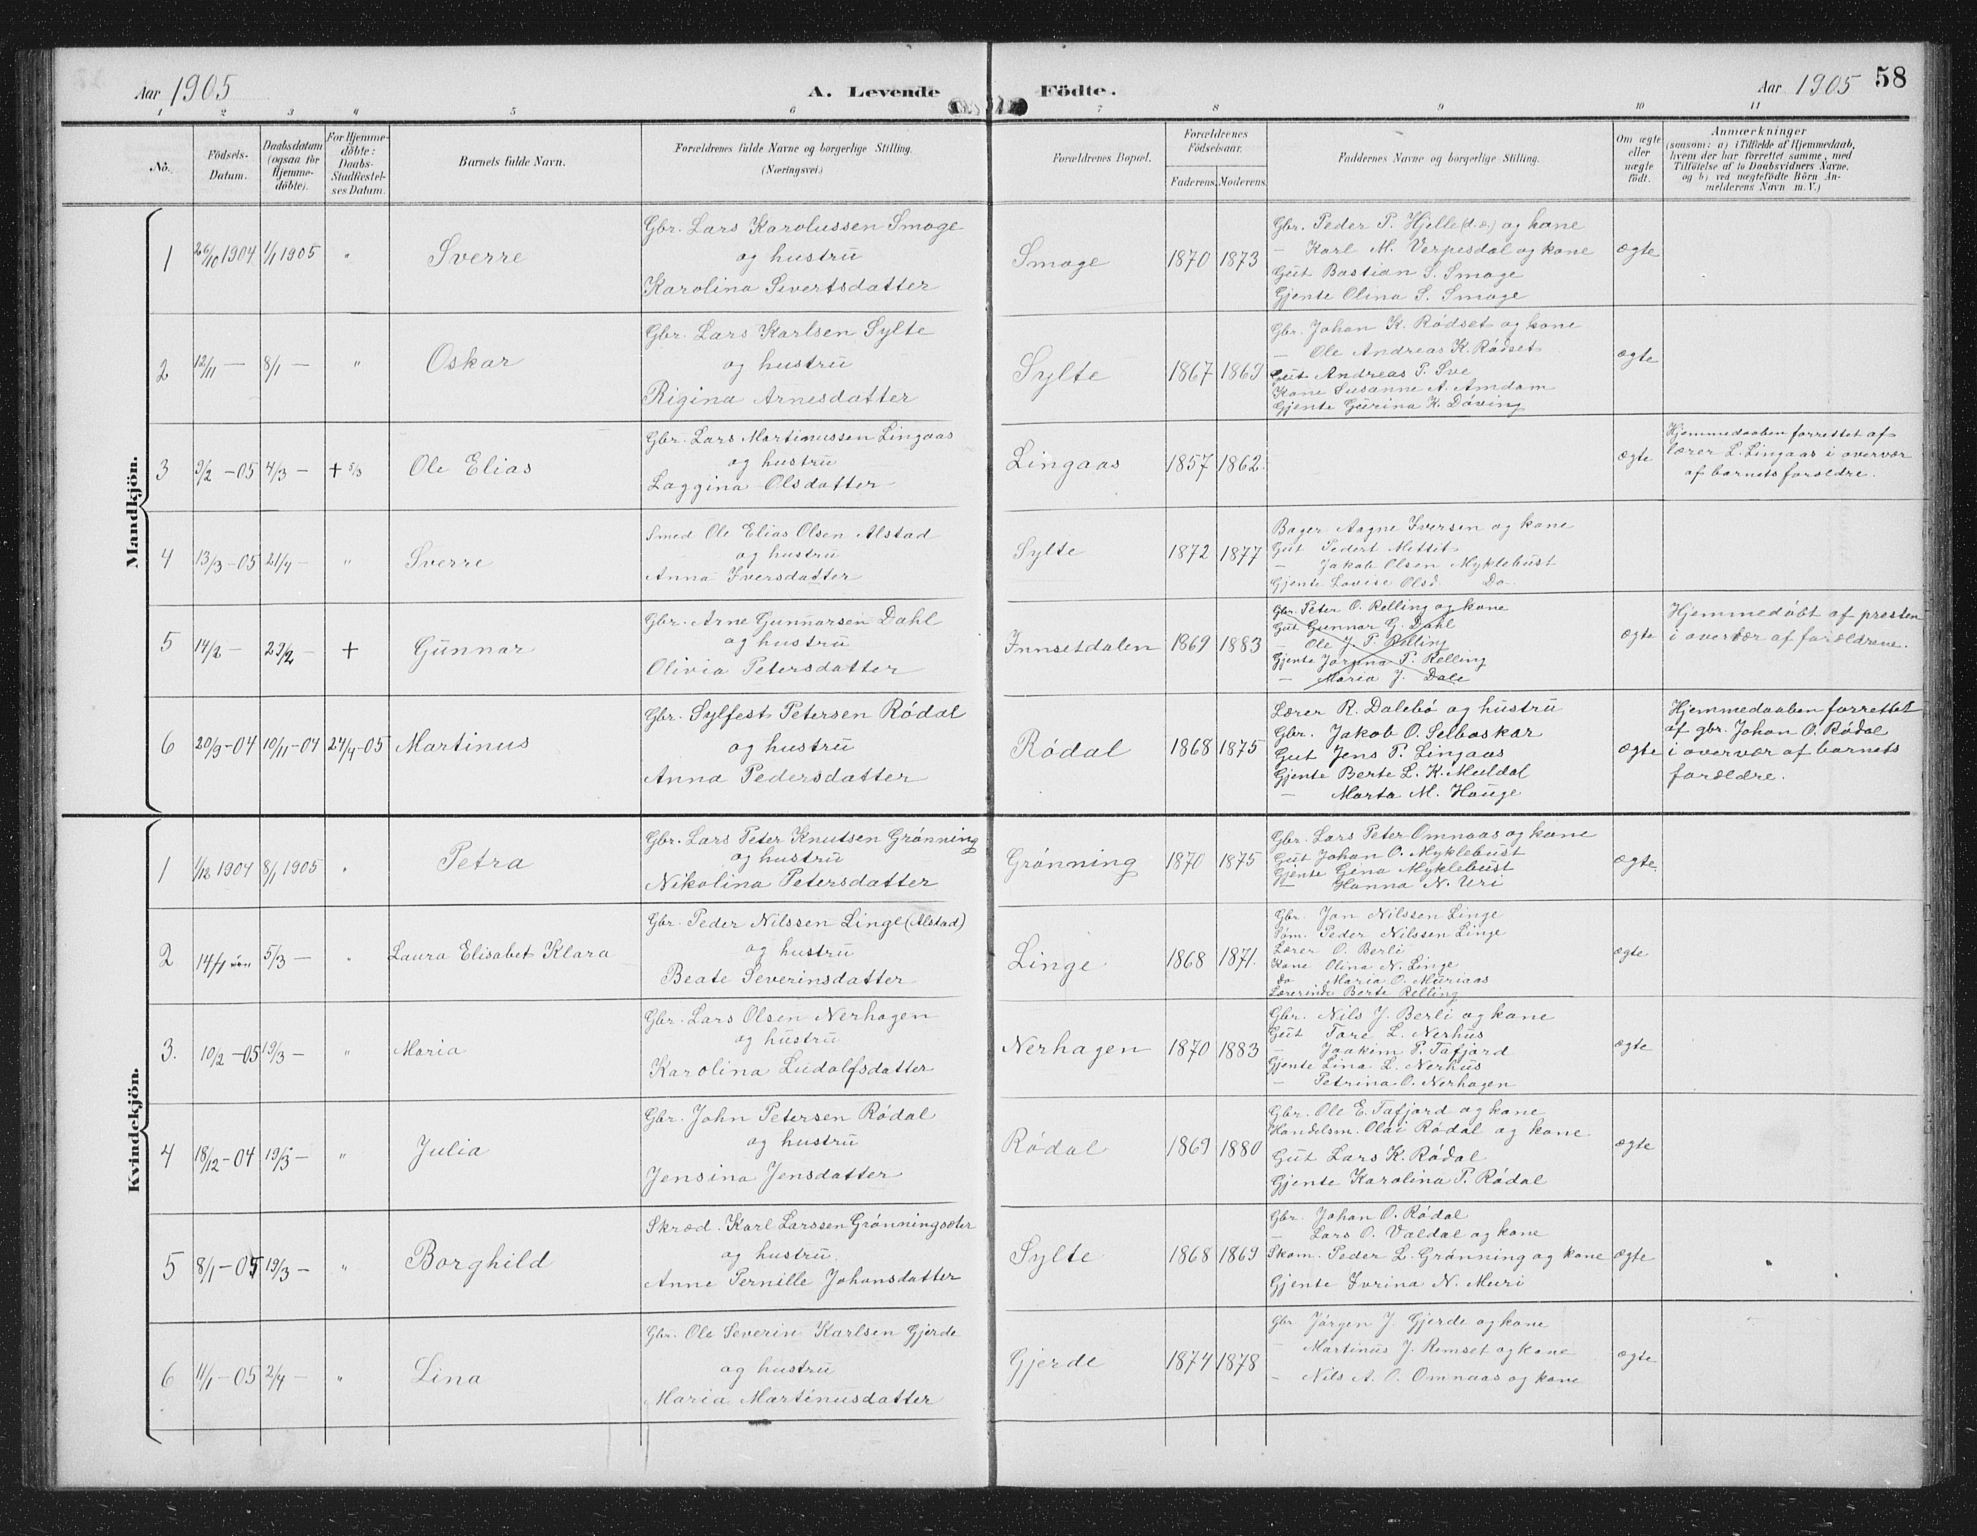 Aar 1905
A. Levende Födte.
Aar 1905 58
1 2 3 4 5 6 7 8 9 10 11
No.
Födsels-Datum.
Daabsdatum (ogsaa for Hjemme-döbte).
For Hjemme-döbte: Daabs-Stadfæstel-ses Datum.
Barnets fulde Navn.
Forældrenes fulde Navne og borgerlige Stilling. (Næringsvei.)
Forældrenes Bopæl.
Forældrenes Födselsaar.
Faderens. Moderens.
Faddernes Navne og borgerlige Stilling.
Om ægte eller uægte födt.
Anmærkninger
(saasom: a) i Tilfælde af Hjemmedaab, hvem der har forrettet samme, med Tilföielse af to Daabsvidners Navne. og b) ved uægtefödte Börn An-melderens Navn m. V.)
Mandkjön.
1 26/10 1904 1/1 1905 " Sverre
Gbr. Lars Karolussen Smoge
og hustru
Karolina Sivertsdatter
Smoge 1870 1873
Gbr. Peder P. Hjelle (d.e.) og kone
- Karl M. Verpesdal og kone
Gut Bastian S. Smoge
Gjente Olina S. Smoge
ægte
2 12/11 - 8/1 - " Oskar
Gbr. Lars Karlsen Sylte
og hustru
Rigina Arnesdatter
Sylte 1867 1869
Gbr. Johan K. Rødset og kone
- Ole Andreas K. Rødset
Gut Andreas P. Sve
Kone Susanne A. Amdam
Gjente Gurina K. Døving
ægte
3 9/2 -05 4/3 - + 5/3 Ole Elias
Gbr. Lars Martinussen Lingaas
og hustru
Laggina Olsdatter
Lingaas 1857 1862.
ægte
Hjemmedaaben forrettet af
lærer L. Lingaas i overvær
af barnets forældre.
4 13/3 -05 21/4 - " Sverre
Smed Ole Elias Olsen Alstad
og hustru
Anna Iversdatter
Sylte 1872 1877
Bager Aagne Iversen og kone
Gut Pedert Mittet
- Jakob Olsen Myklebust
Gjente Lovise Olsd. Do
5 14/2 - 29/2 - + Gunnar
Gbr. Arne Gunnarsen Dahl
og hustru
Olivia Petersdatter
Innsetdalen 1869 1883
Gbr. Peter O. Relling og kone
Gut Gunnar G. Dahl
- Ole J. P. Relling
Gjente Joruna P. Relling
- Maria J. Dale
ægte
Hjemmedøbt af presten
i overvær af forældrene.
6 20/9-04 10/11-04 24/4-05 Martinus
Gbr. Sylfest Petersen Rødal
og hustru
Anna Pedersdatter
Rødal 1868 1875
Lærer R. Dalebø og hustru
Gbr. Jakob O. Selboskar
Gut Jens P. Lingaas
Gjente Berte L. K. Muldal
- Marta M. Hauge
ægte
Hjemmedaaben forrettet
af gbr. Johan O. Rødal
i overvær af barnets
forældre.
Kvindekjön.
1 1/12 1904 8/1 1905 " Petra
Gbr. Lars Peter Knutsen Grønning
og hustru
Nikolina Petersdatter
Grønning 1870 1875
Gbr. Lars Peter Omnaas og kone
Gut Johan O. Myklebust
Gjente Gina Myklebust
- Hanna N. Uri
ægte
2 14/1 5/3 - " Laura Elisabet Klara
Gbr. Peder Nilssen Linge (Alstad)
og hustru
Beate Severinsdatter
Linge 1868 1871.
Gbr. Jon Nilssen Linge
Tøm. Peder Nilssen Linge
Lærer O. Berli
Kone Olina N. Linge
Do Maria O. Muriaas
Lærerinde Berte Relling
ægte
3. 10/2 -05 19/3 - " Maria
Gbr. Lars Olsen Nerhagen
og hustru
Karolina Ludolfsdatter
Nerhagen 1870 1883
Gbr. Nils J. Berli og kone
Gut Tore L. Nerhus
- Joakim P. Tafjord
Gjente Lina L. Nerhus
- Petrina O. Nerhagen
ægte
4 18/12 -04 19/3 - " Julia
Gbr. John Petersen Rødal
og hustru
Jensina Jensdatter
Rødal 1869 1880
Gbr. Ole E. Tafjord og kone
Handelsm. Olai Rødal og kone
Gut Lars K. Rødal
Gjente Karolina P. Rødal
ægte
5 8/1 -05 19/3 - " Borghild
Skræd. Karl Larssen Grønningsæter
og hustru
Anne Pernille Johansdatter
Sylte 1868 1869
Gbr. Johan O. Rødal
- Lars O. Valdal og kone
Skom. Peder L. Grønning og kone
Gjente Ivrina N. Muri
ægte
6 11/1 -05 2/4 - " Lina
Gbr. Ole Severin Karlsen Gjerde
og hustru
Maria Martinusdatter
Gjerde 1874 1878
Gbr. Jørgen J. Gjerde og kone
- Martinus J. Remset og kone
- Nils A. O. Omnaas og kone
ægte